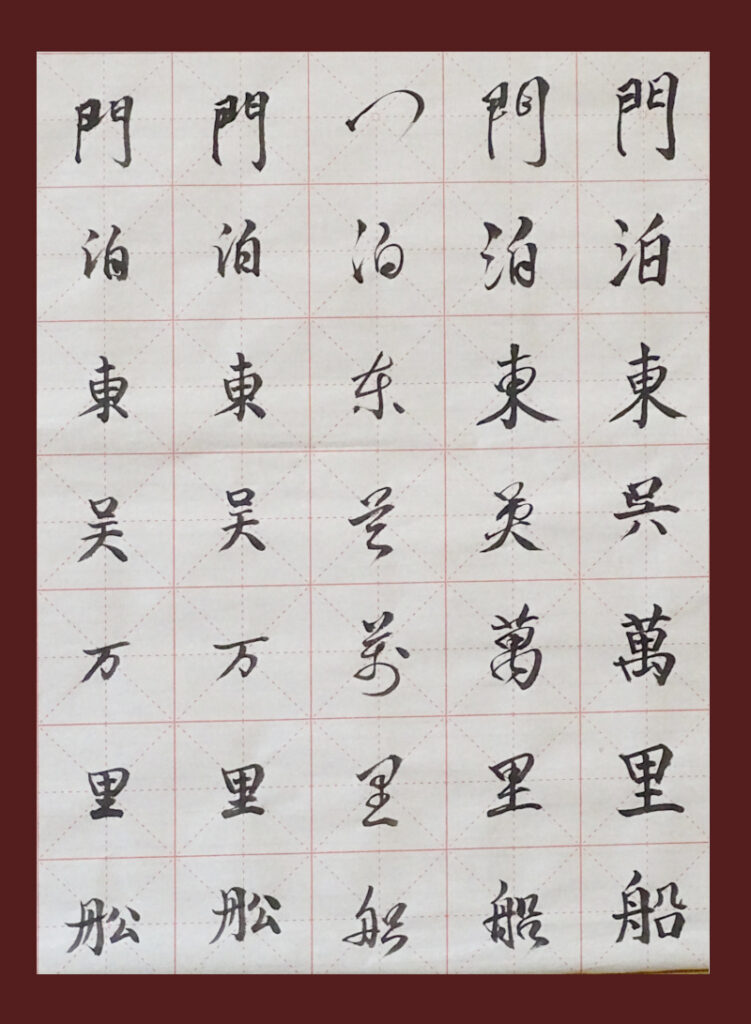 門泊東呉萬里船
門泊東吳萬里船
门泊东吴萬里船
門泊東吴万里舩
門泊東吴万里舩